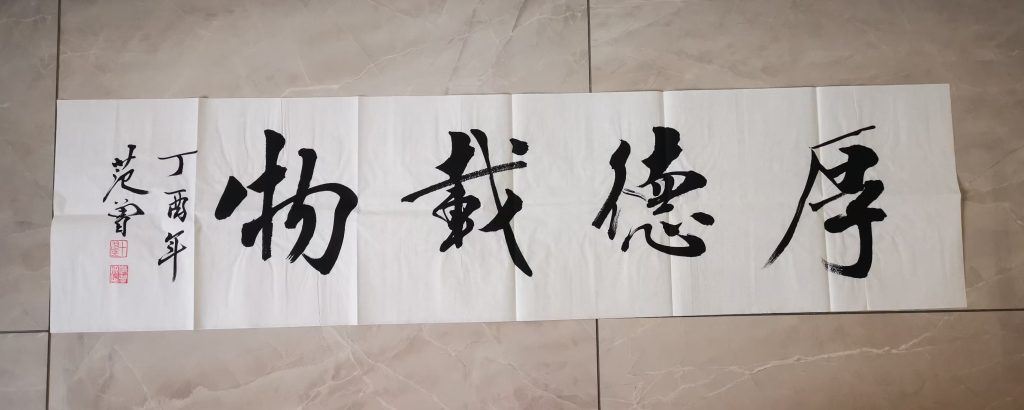 厚德載物
丁酉年
范曾